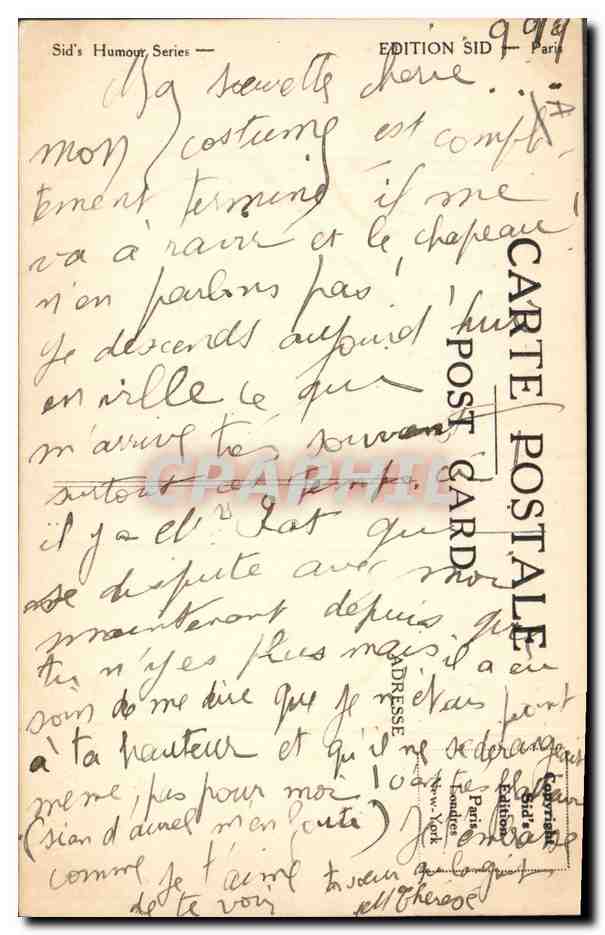 Sid's Humour Series — EDITION SID — Paris
999
Ma sœurette chérie ...
mon costume est complè-
tement terminé il me
va à ravir et le chapeau!
n'en parlons pas!
Je descends aujourd'hui!
en ville ce qui
m'arrive très souvent
surtout ce temps ci
il y a Mr Rat qui
se dispute avec moi
maintenant depuis que
tu n'y es plus mais il a eu
soin de me dire que je n'étais point
à ta hauteur et qu'il ne se dérangeait
même pas pour moi!
(
) Je t'embrasse
comme je t'aime ta sœur
de te voir
Mthérèse
CARTE POSTALE
POST CARD
ADRESSE
Copyright
Sid's
Edition
Paris
Londres
New-York
CPAPHIL